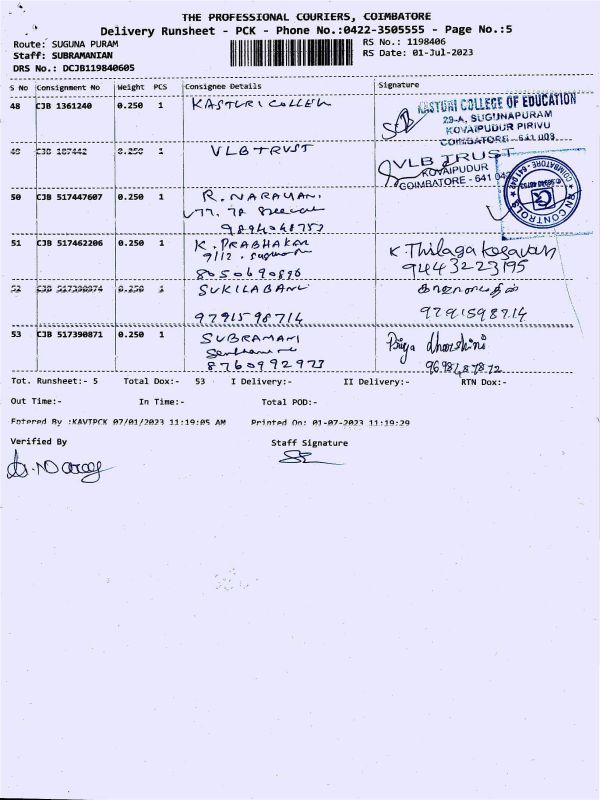 THE PROFESSIONAL COURIERS, COIMBATORE
Delivery Runsheet - PCK - Phone No.:0422-3505555 - Page No.:5
Route: SUGUNA PURAM RS No.: 1198406
Staff: SUBRAMANIAN RS Date: 01-Jul-2023
DRS No.: DCJB119840605
S No Consignment No Weight PCS Consignee Details Signature
48 CJB 1361240 0.250 1 KASTURI COLLEGE
KASTURI COLLEGE OF EDUCATION
29-A, SUGUNAPURAM
KOVAIPUDUR PIRIVU
COIMBATORE - 641 008.
49 CJB 187442 0.250 1 VLB TRUST VLB TRUST
KOVAIPUDUR
COIMBATORE - 641 042
50 CJB 517447607 0.250 1 R. NARAYAN.
9894048753
51 CJB 517462206 0.250 1 K. PRABHAKAR K Thilagakesavan
9/12. 9443223195
8050690896
52 0.250 1 SUKILABANI
9791598714 9791598714
53 CJB 517390871 0.250 1 SUBRAMANI Priya dharshini
8760992973 9698487872
Tot. Runsheet:- 5 Total Dox:- 53 I Delivery:- II Delivery:- RTN Dox:-
Out Time:- In Time:- Total POD:-
Entered By :KAVIPCK 07/01/2023 11:19:05 AM Printed On: 01-07-2023 11:19:29
Verified By Staff Signature